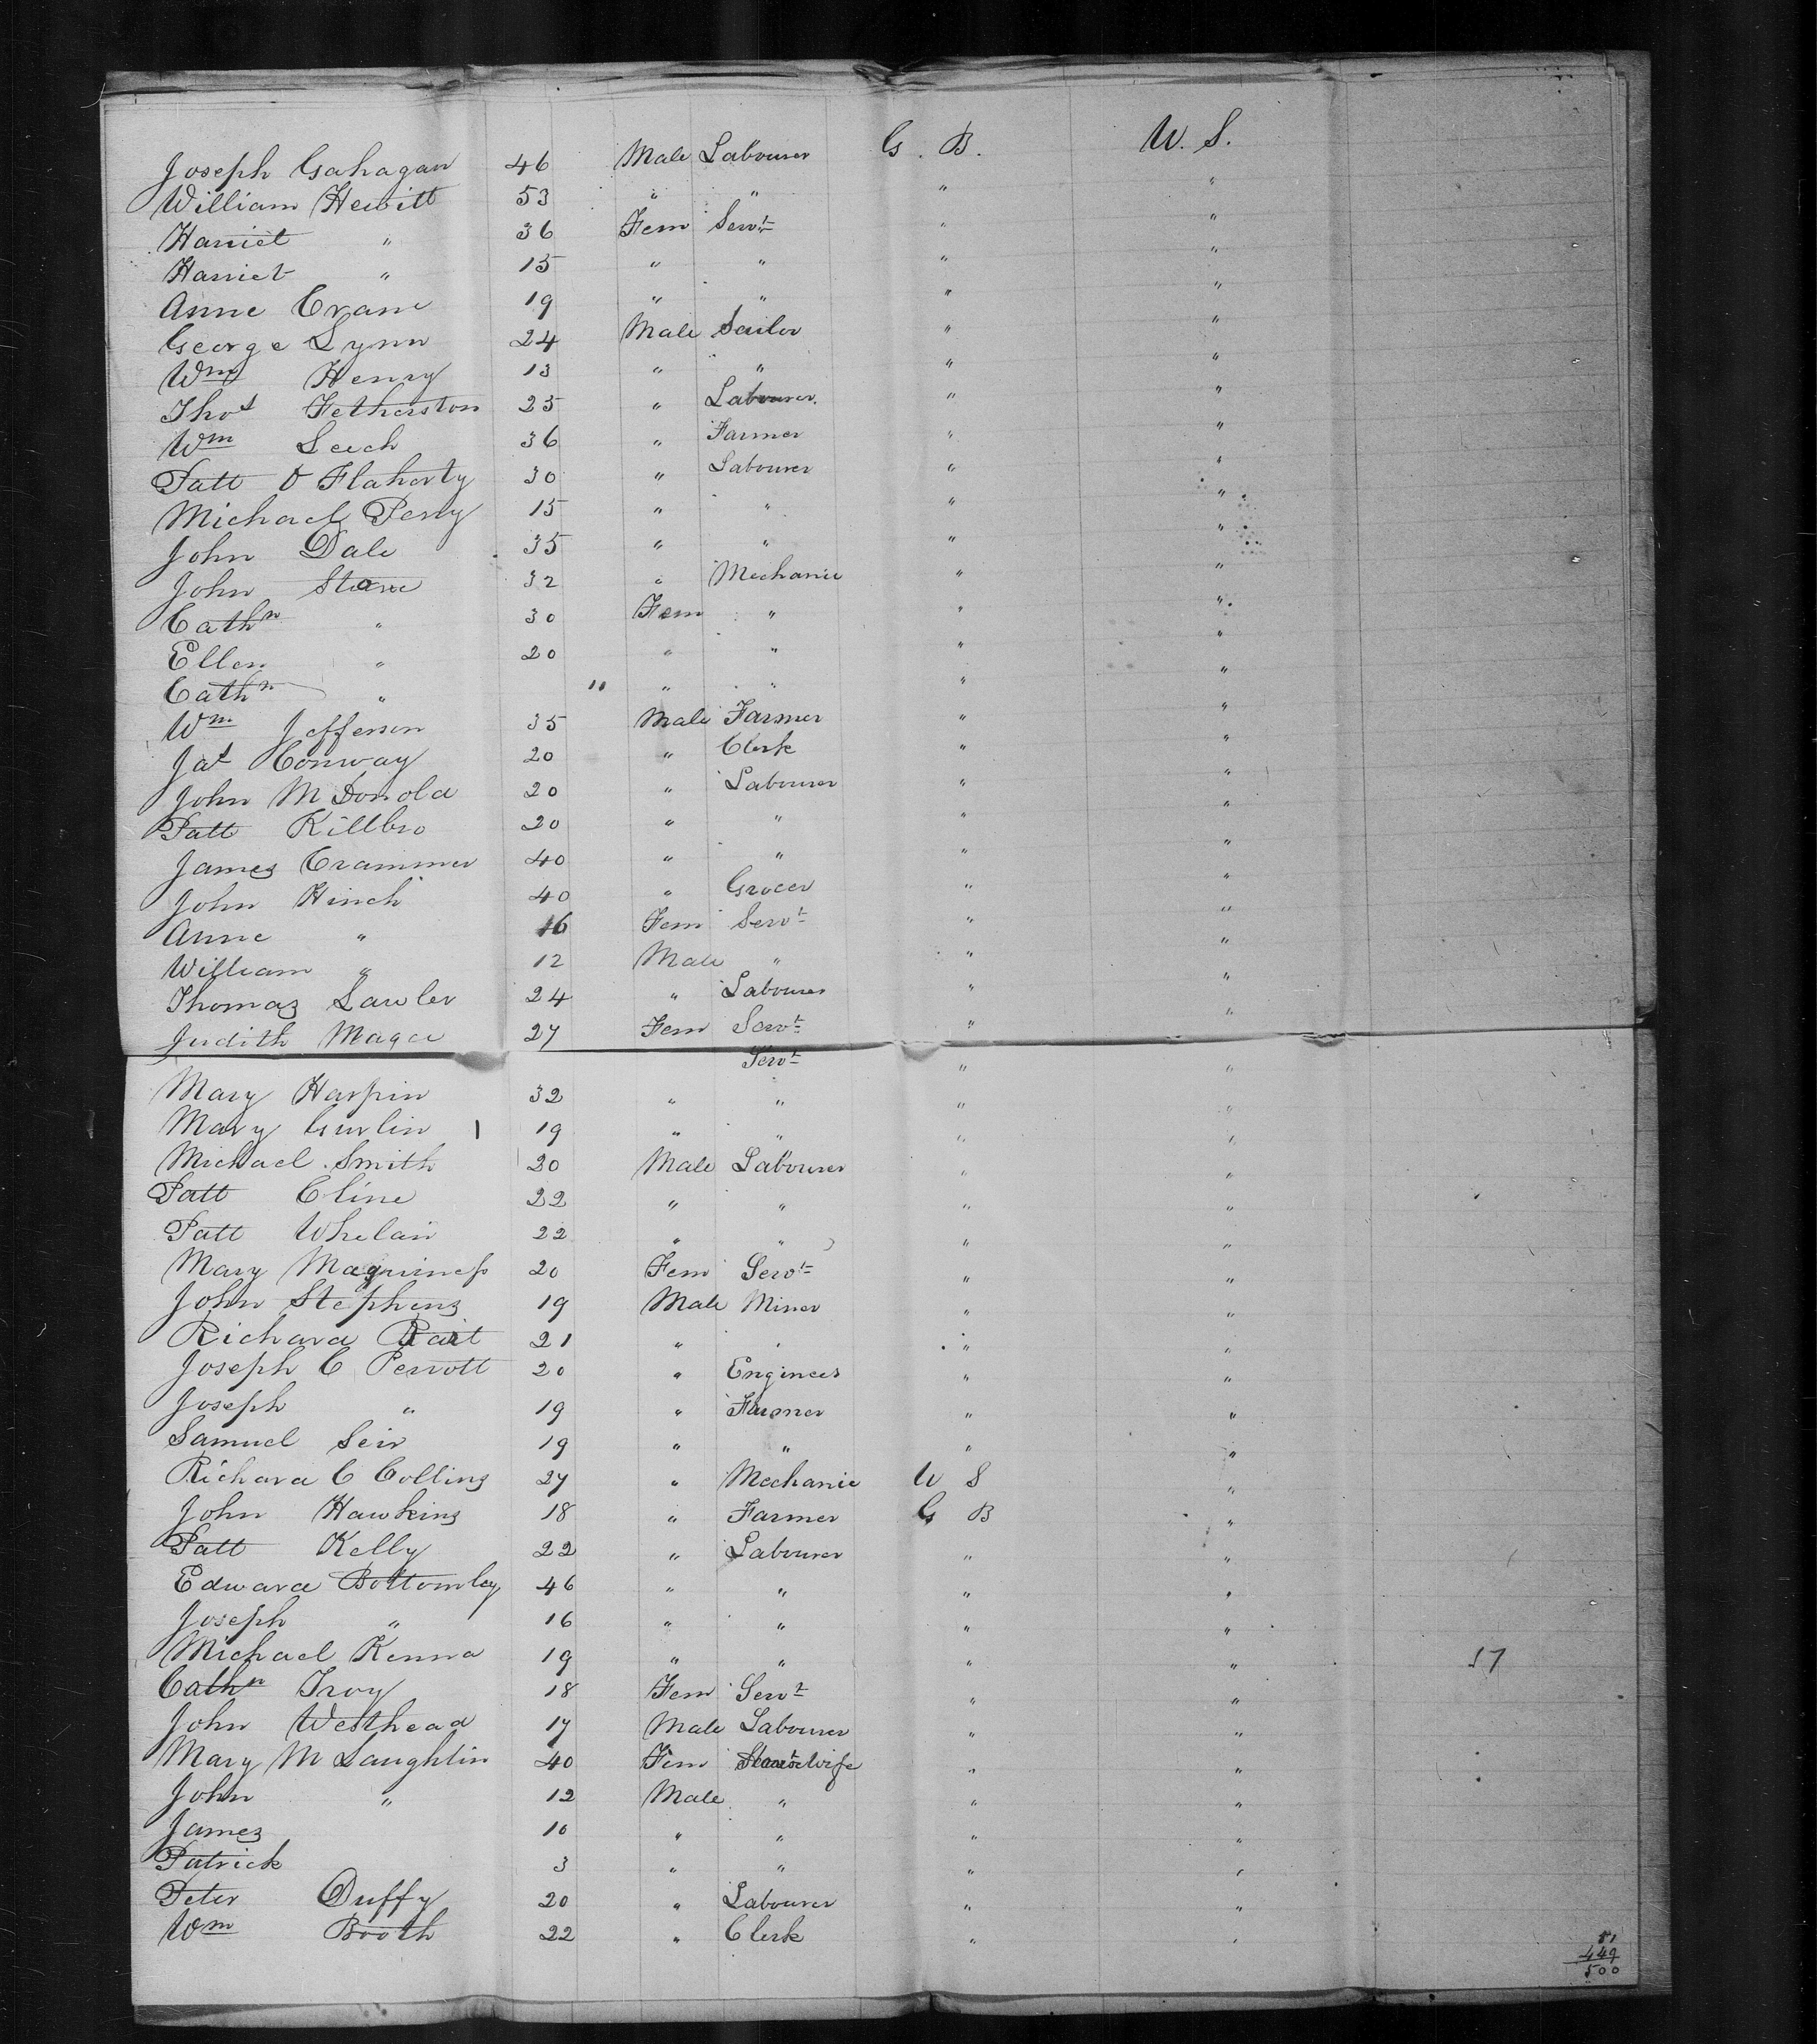 Joseph Gahagan 46 Male Labourer G. B. U. S.
William Hewitt 53 " " " "
Harriet " 36 Fem Servt " "
Harriet " 15 " " " "
Anne Crane 19 " " " "
George Lynn 24 Male Sailor " "
Wm Henry 13 " " " "
Thos Fetherston 25 " Labourer " "
Wm Leech 36 " Farmer " "
Patt O Flaherty 30 " Labourer " "
Michael Perry 15 " " " "
John Dale 35 " " " "
John Stone 32 " Mechanic " "
Cathn " 30 Fem " " "
Ellen " 20 " " " "
Cathn " 11 " " " "
Wm Jefferson 35 Male Farmer " "
Jas Conway 20 " Clerk " "
John McDonold 20 " Labourer " "
Patt Killbro 20 " " " "
James Crammer 40 " " " "
John Hinch 40 " Grocer " "
Anne " 16 Fem Servt " "
William " 12 Male " " "
Thomas Lawler 24 " Labourer " "
Judith Magee 27 Fem Servt " "
Servt " "
Mary Harpin 32 " " " "
Mary Gurlin 19 " " " "
Michael Smith 20 Male Labourer " "
Patt Cline 22 " " " "
Patt Whelan 22 " " " "
Mary Maguiness 20 Fem Servt " "
John Stephens 19 Male Miner " "
Richard 21 " " " "
Joseph C Perrott 20 " Engineer " "
Joseph " 19 " Farmer " "
Samuel 19 " " " "
Richard C Collins 27 " Mechanic U S "
John Hawkins 18 " Farmer G B "
Patt Kelly 22 " Labourer " "
Edward Bottomley 46 " " " "
Joseph " 16 " " " "
Michael Kenna 19 " " " " 17
Cathn Troy 18 Fem Servt " "
John Westhead 17 Male Labourer " "
Mary McLaughlin 40 Fem Housewife " "
John " 12 Male " " "
James 10 " " " "
Patrick 3 " " " "
Peter Duffy 20 " Labourer " "
Wm Booth 22 " Clerk " "
51
449
500